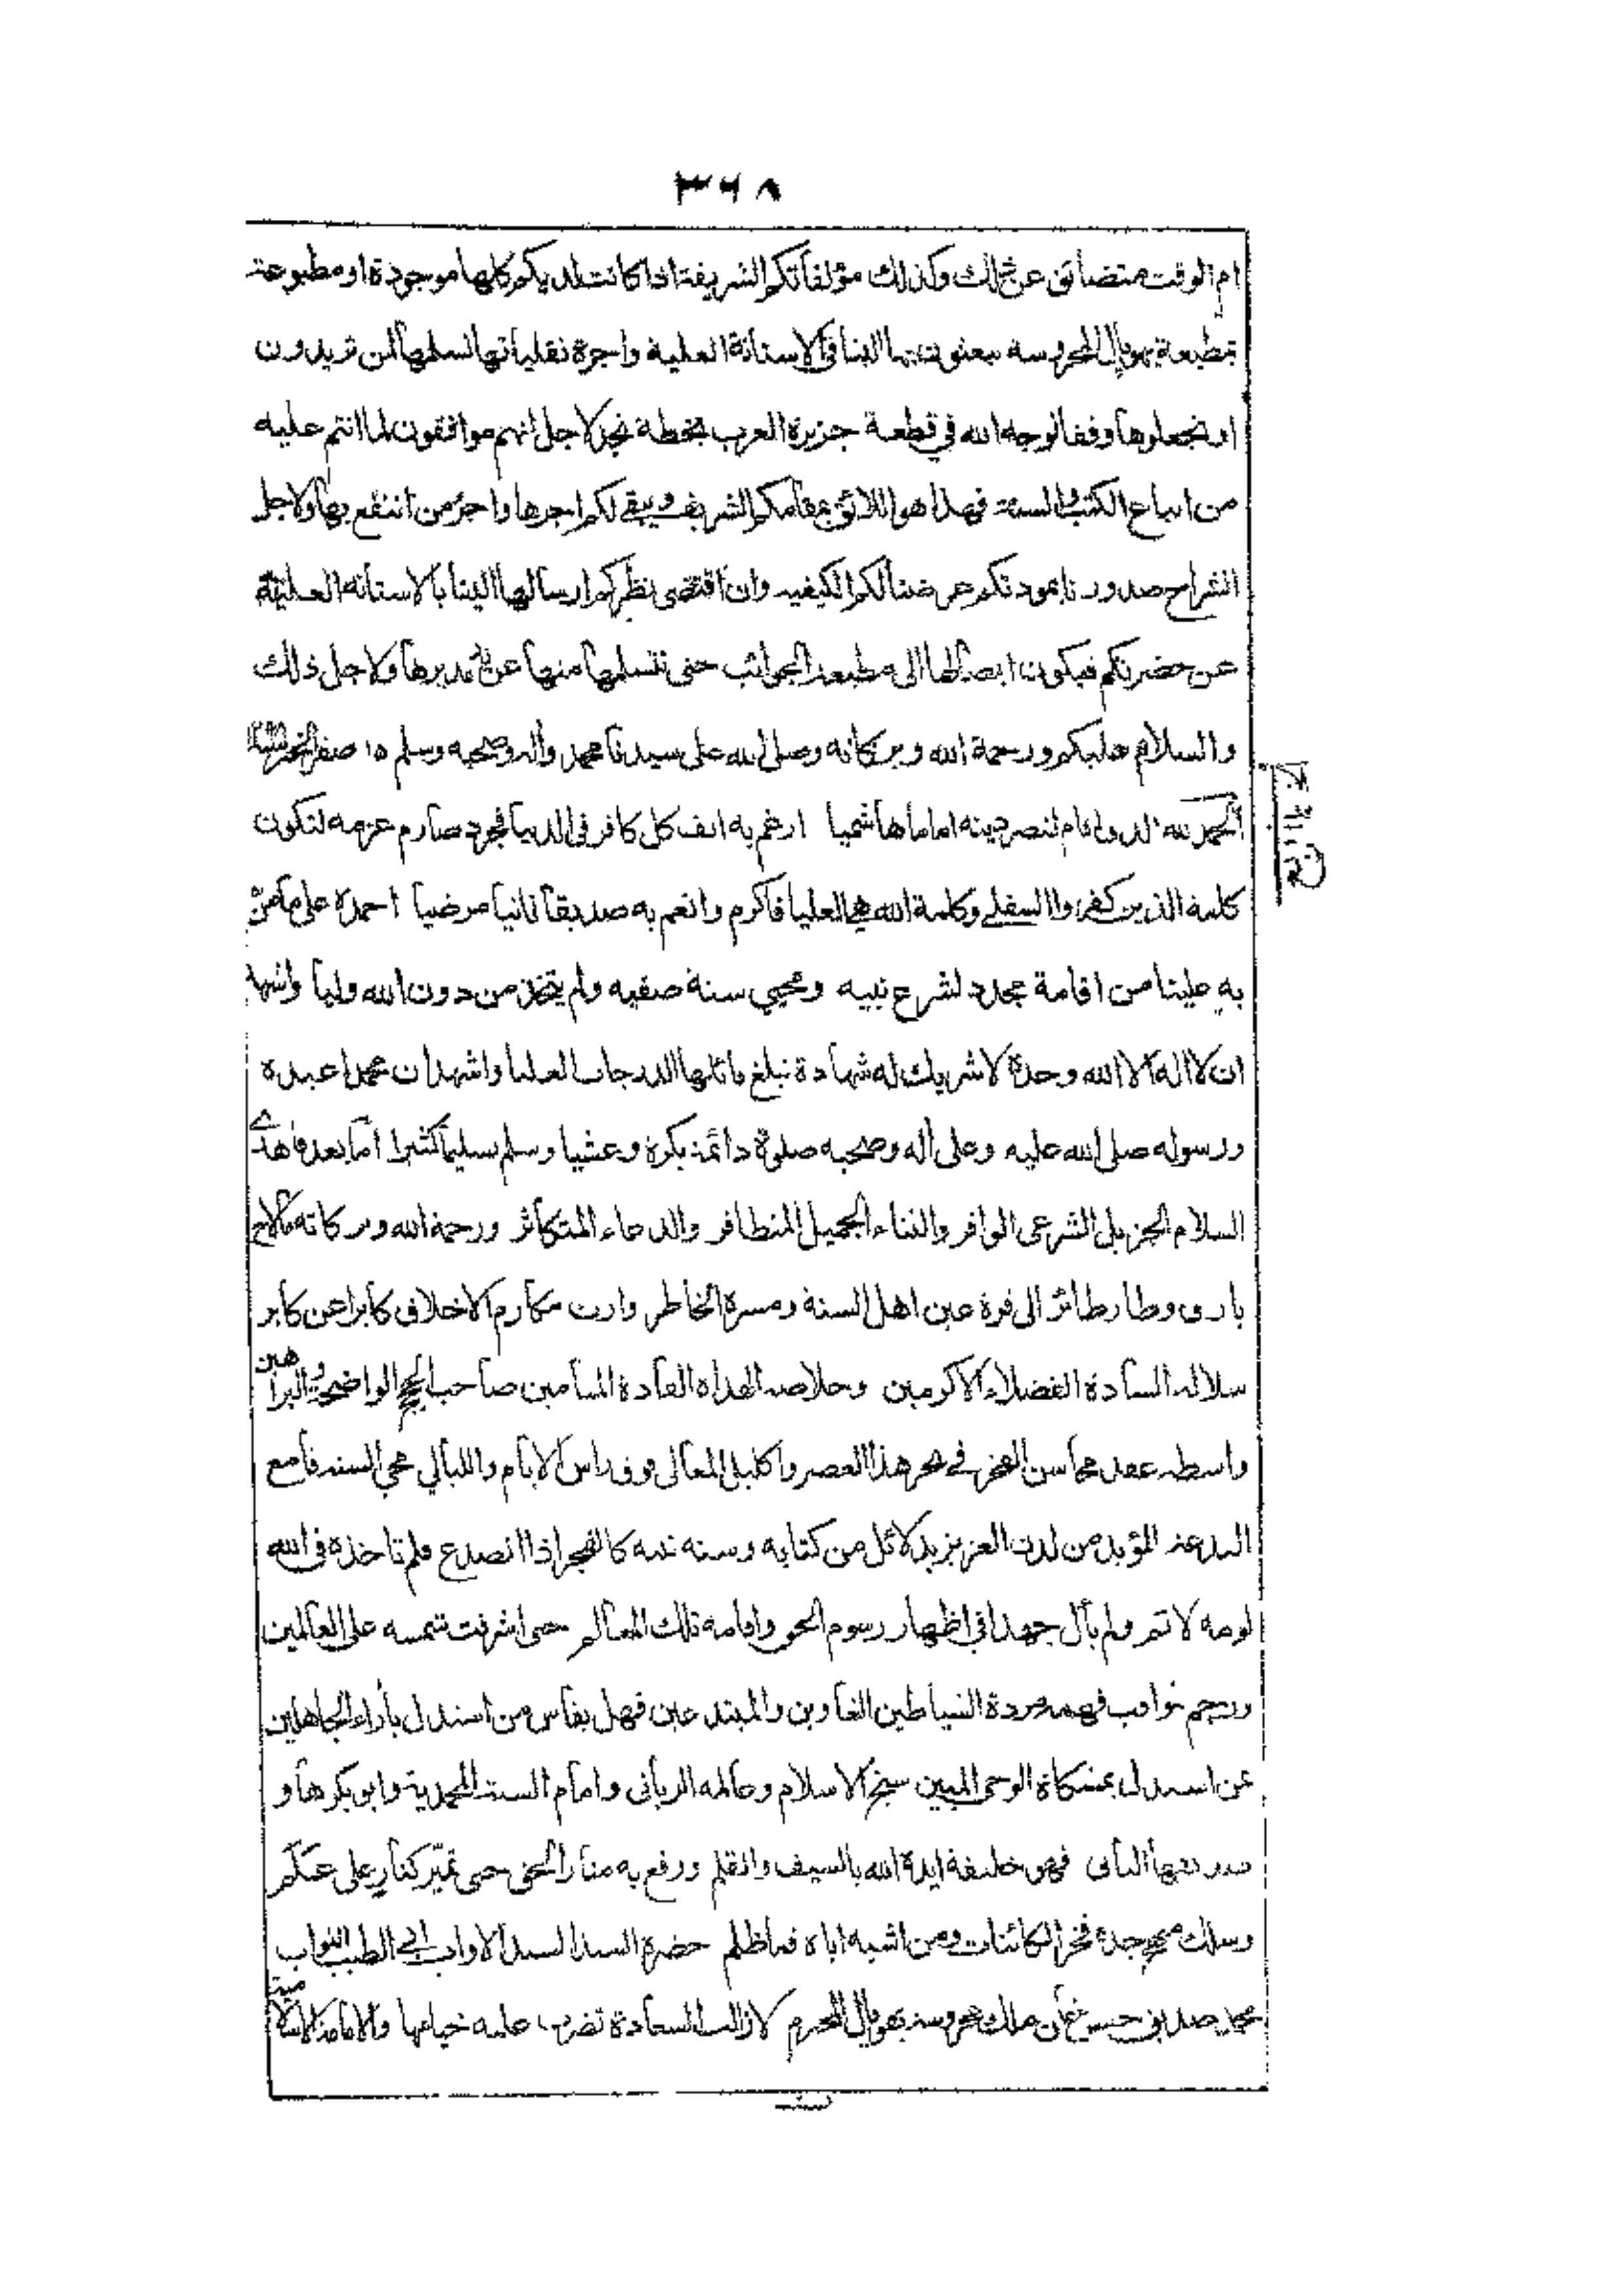 ٣٦٨
ام الوقت متضائق عن ذلك وكذلك مؤلفاتكم الشريفة اذا كانت لديكم كلها موجودة او مطبوعة
بمطبعة بهوپال المحروسه تبعثون بها الينا في الاستانة العلية واجرة نقلياتها نسلمها لمن تريدون
او تجعلوها وقفا لوجه الله في قطعة جزيرة العرب بخطة نجد لاجل انهم موافقون لما انتم عليه
من اتباع الكتاب والسنة فهذا هو اللائق بمقامكم الشريف ويبقى لكم اجرها واجر من انتفع بها ولاجل
انشراح صدورنا بمودتكم عرضنا لكم الكيفيه وان اقتضى نظركم ارسالها الينا بالاستانه العلية
عن حضرتكم فيكون ايصالها الى مطبعة الجوائب حتى نتسلمها منها عن يد مديرها ولاجل ذلك
والسلام عليكم ورحمة الله وبركاته وصلى الله على سيدنا محمد واله وصحبه وسلم ١٥ صفر الخير
الحمد لله الذي اقام لنصر دينه اماما هاشميا ارغم به انف كل كافر في الدنيا فجرد صارم عزمه لتكون
كلمة الذين كفروا السفلى وكلمة الله هي العليا فاكرم وانعم به صديقا ثانيا مرضيا احمده على ما منّ
به علينا من اقامة مجدد لشرع نبيه ومحيي سنة صفيه ولم يتخذ من دون الله وليا واشهد
ان لا اله الا الله وحده لا شريك له شهادة تبلغ قائلها الدرجات العليا واشهد ان محمدا عبده
ورسوله صلى الله عليه وعلى اله وصحبه صلوة دائمة بكرة وعشيا وسلم تسليما كثيرا اما بعد فاهدي
السلام الجزيل الشرعى الوافر والثناء الجميل المتظافر والدعاء المتكاثر ورحمة الله وبركاته ما لاح
بارق وطار طائر الى قرة عين اهل السنة ومسرة الخاطر وارث مكارم الاخلاق كابرا عن كابر
سلالة السادة الفضلاء الاكرمين وخلاصة الهداة القادة الميامين صاحب الحجج الواضحة والبراهين
واسطة عقد محاسن الفخر في نحر هذا العصر واكليل المعالى فوق راس الايام والليالي محي السنة قامع
البدعة المؤيد من لدن العزيز بدلائل من كتابه وسنة نبيه كالفجر اذا انصدع فلم تاخذه في الله
لومة لائم ولم يأل جهدا في اظهار رسوم الحق واقامة تلك المعالم حتى اشرقت شمسه على العالمين
ورجم ثواقب فهمه مردة الشياطين الغاوين والمبتدعين فهل يقاس من استدل بأراء الجاهلين
عن استدل بمشكاة الوحى المبين شيخ الاسلام وعالمه الربانى وامام السنة المحمدية وابو بكرها و
صديقها الثانى فهو خليفة ايده الله بالسيف والقلم ورفع به منار الحق حتى تميّز كنار على علم
وسلك منهج جده فخر الكائنات ومن اشبه اباه فما ظلم حضرة السيد السند الاواب ابى الطيب النواب
محمد صديق حسن خان ملك محروسة بهوپال المحترم لازالت السعادة تضرب عليه خيامها والامامة الاسلامية